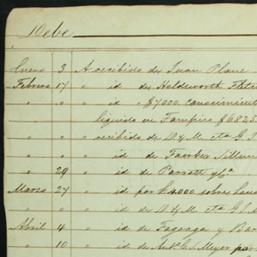 Debe
Enero 3 A recibido de Juan Plane
Febrero 17 " id de Holdsworth Flet
" " id $7000 conocimient
liquido en Tampico $6825
" " recibido de D y M. cta G. S
" " id de
" 29 " id de Parrott y Ca
Marzo 27 " id por $4000 sobre
" " id de D y M. cta G. S.
Abril 4 " id de Fagoaga y Bar
" 10 " id de Meyer par